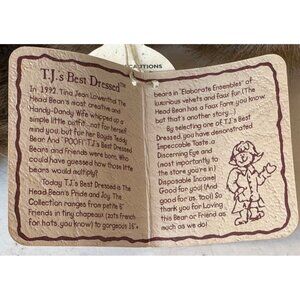 CAUTIONS
T.J.'s Best Dressed™
In 1992, Tina Jean Lowenthal The
Head Bean's most creative and
Handy-Dandy Wife whipped up a
simple little outfit...not for herself
mind you, but for her Boyds Teddy
Bear. And "POOF!" T.J.'s Best Dressed
Bears and Friends were born. Who
could have guessed how those little
bears would multiply?
Today T.J.'s Best Dressed is The
Head Bean's Pride and Joy. The
Collection ranges from petite 6"
Friends in tiny chapeaux (zats french
for hats, you know) to gorgeous 16"+
bears in "Elaborate Ensembles" of
luxurious velvets and faux fur (The
Head Bean has a Faux Farm, you know,
but that's another story...)
By selecting one of T.J.'s Best
Dressed, you have demonstrated
Impeccable Taste..a
Discerning Eye and
most importantly to
the store you're in)
Disposable Income!
Good for you! (And
good for us, too!) So
thank you for Loving
this Bear or Friend as
much as we do!